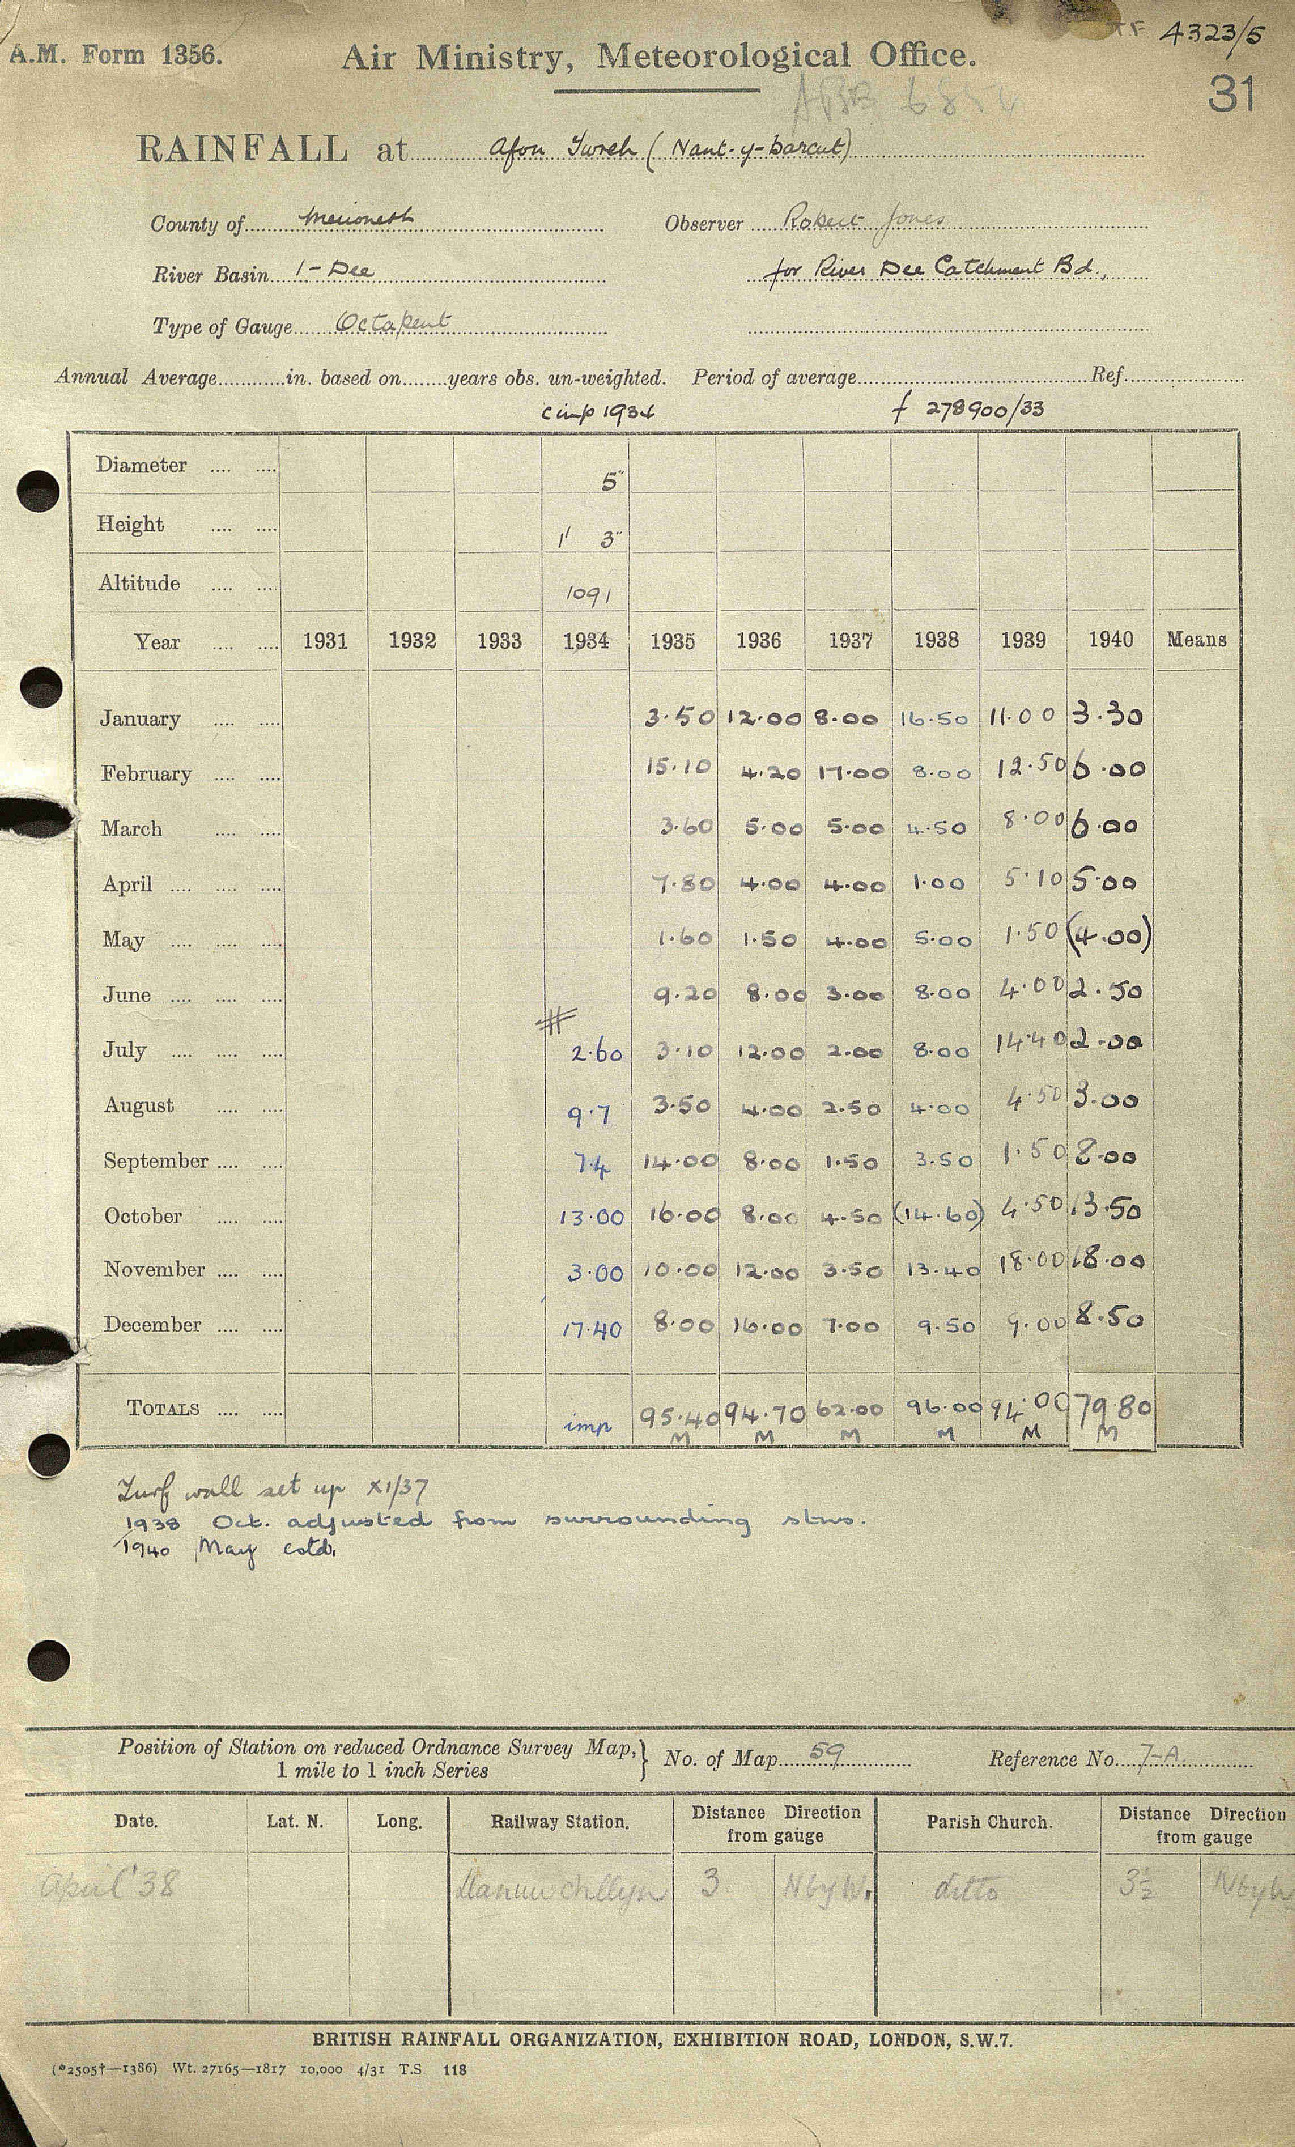 4323/5
A.M. Form 1356. Air Ministry, Meteorological Office.
31
RAINFALL at Afon Twrch (Nant-y-barcut)
County of Merioneth Observer Robert Jones
River Basin 1 - Dee for River Dee Catchment Bd.,
Type of Gauge Octapent
Annual Average in. based on years obs. un-weighted. Period of average Ref.
imp 1934 f 278900/33
Diameter .... .... 5"
Height .... .... 1' 3"
Altitude .... .... 1091
Year .... .... 1931 1932 1933 1934 1935 1936 1937 1938 1939 1940 Means
January .... .... 3.50 12.00 8.00 16.50 11.00 3.30
February .... .... 15.10 4.20 17.00 8.00 12.50 6.00
March .... .... 3.60 5.00 5.00 4.50 8.00 6.00
April .... .... .... 7.80 4.00 4.00 1.00 5.10 5.00
May .... .... .... 1.60 1.50 4.00 5.00 1.50 (4.00)
June .... .... .... 9.20 8.00 3.00 8.00 4.00 2.50
July .... .... .... 2.60 3.10 12.00 2.00 8.00 14.40 2.00
August .... .... 9.7 3.50 4.00 2.50 4.00 4.50 3.00
September .... .... 7.4 14.00 8.00 1.50 3.50 1.50 8.00
October .... .... 13.00 16.00 8.00 4.50 (14.60) 4.50 13.50
November .... .... 3.00 10.00 12.00 3.50 13.40 18.00 18.00
December .... .... 17.40 8.00 16.00 7.00 9.50 9.00 8.50
TOTALS .... .... imp 95.40 94.70 62.00 96.00 94.00 79.80
M M M M M M
Turf wall set up x1/37
1938 Oct. adjusted from surrounding stns.
1940 May estd.
Position of Station on reduced Ordnance Survey Map, } No. of Map 59 Reference No. 7-A
1 mile to 1 inch Series
Date. Lat. N. Long. Railway Station. Distance Direction from gauge Parish Church. Distance Direction from gauge
April '38 Llanuwchllyn 3 N by W. ditto 3½ N by W
BRITISH RAINFALL ORGANIZATION, EXHIBITION ROAD, LONDON, S.W.7.
(*2505†—1386) Wt. 27165—1817 10,000 4/31 T.S 118